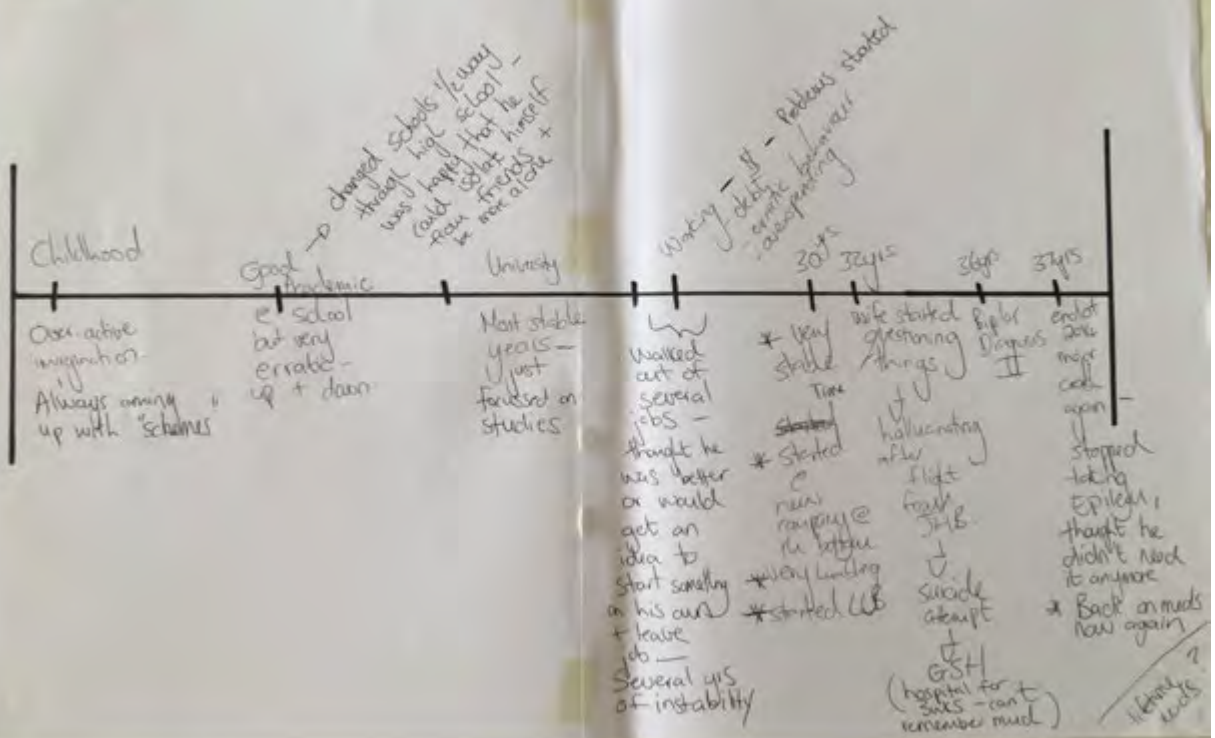 Childhood
Over-active
imagination
Always coming
up with "schemes"
Good
Academic
@ School
but very
erratic -
up + down
→ changed schools 1/2 way
through high school -
was happy that he
could isolate himself
from friends +
be more alone
University
Most stable
years -
just
focussed on
studies
Working - $ - Problems started
- debt
- erratic behaviour
- overspending
Walked
out of
several
jobs -
thought he
was better
or would
get an
idea to
start something
on his own
+ leave
job -
Several yrs
of instability
30yrs
* Very
stable
Time
* started
@
new
company @
the bottom
* Very humbling
* started LLB
32yrs
wife started
questioning
things
↓
hallucinating
after
flight
from
JHB
↓
suicide
attempt
↓
GSH
(hospital for
3wks - can't
remember much)
36yrs
Diagnosis
II
37yrs
end of
major
crash
again -
stopped
taking
Epilem,
thought he
didn't need
it anymore
* Back on meds
now again
lifetime
meds ?